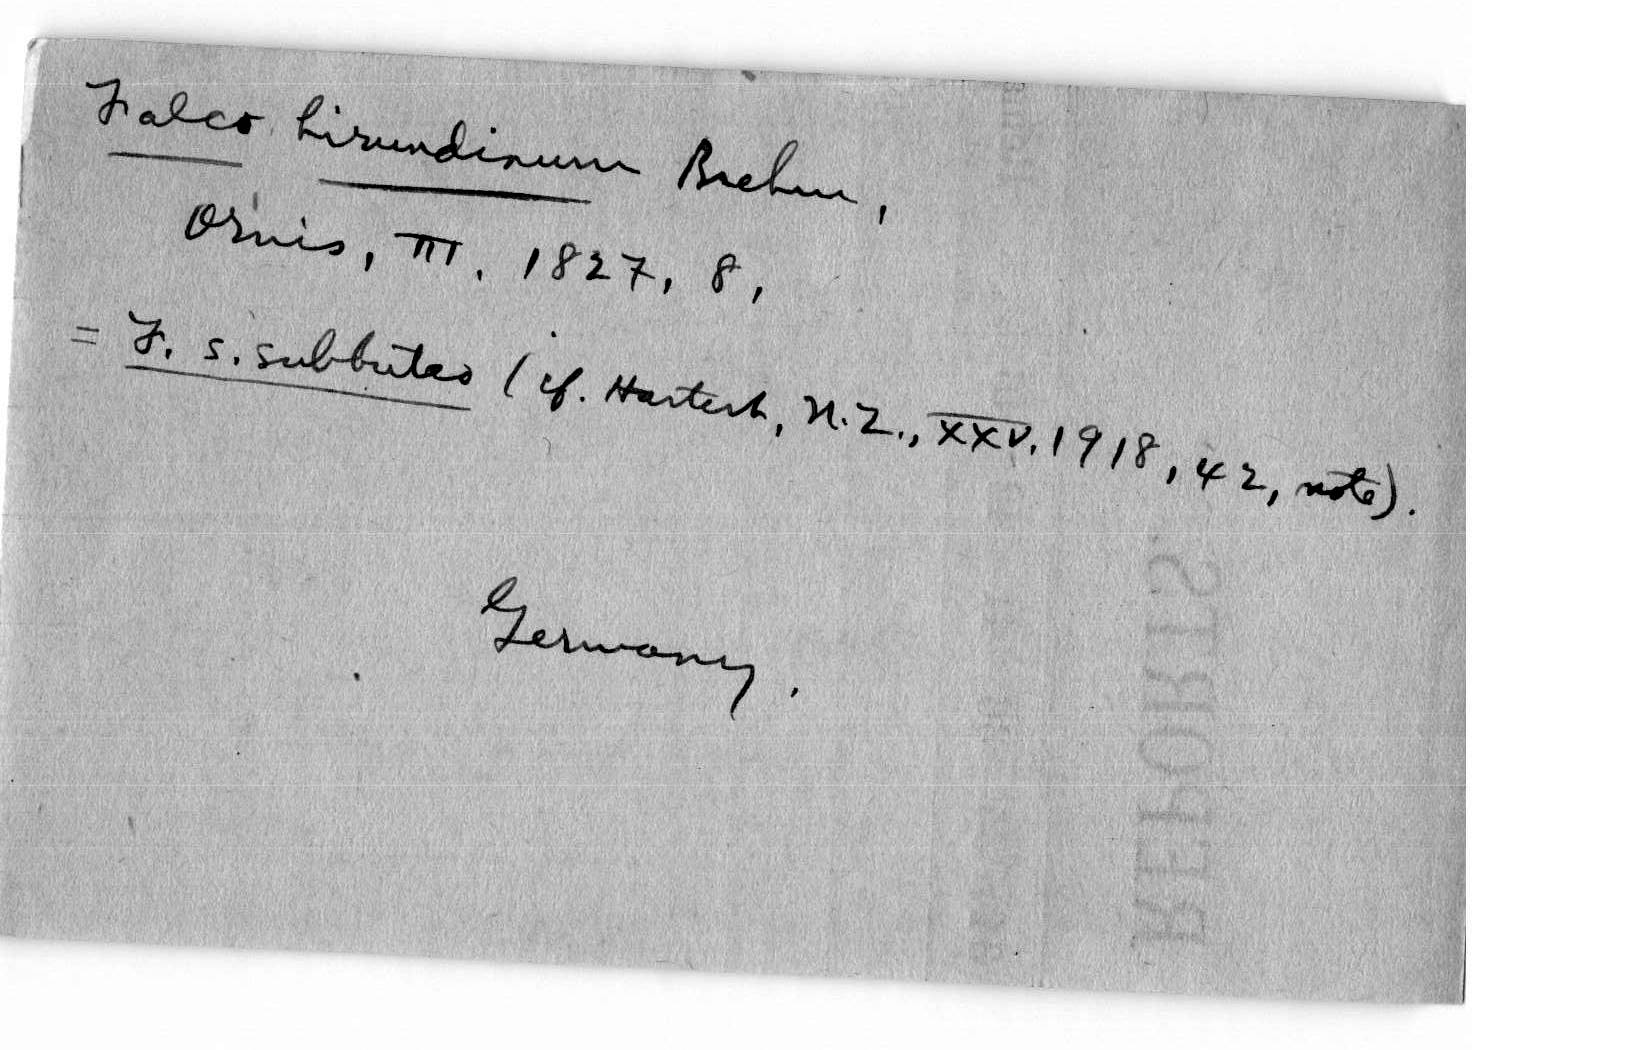 Falco hirundinum Brehm,
Ornis, III. 1827, 8,
= F. s. subbuteo (cf. Hartert, N.Z., XXV. 1918, 42, note).
Germany.
REPORTS